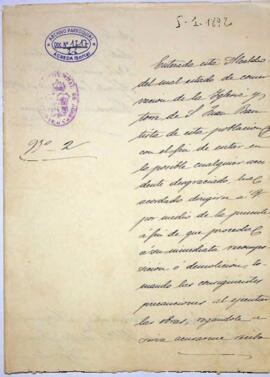 5-1-1892
ARCHIVO PARROQUIAL
AGREDA (SORIA)
Nº 2
Enterado este Alcaldia
del mal estado de conser
vacion de la Yglesia y
torre de S. Juan Bau
tista de esta poblacion
con el fin de evitar en
lo posible cualquier acci
dente desgraciado, he
acordado dirigirme a V
por medio de la presente
á fin de que proceda
á su inmediata recompo
sicion ó demolicion, to
mando las consiguientes
precauciones al ejecutar
las obras, rogandole se
sirva acusarme recibo